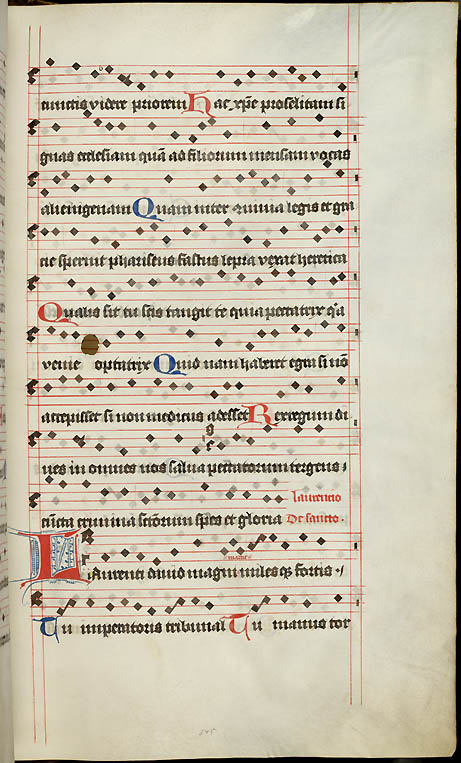 cunctis videre priorem Hac xpe proselitam si
gnas ecclesiam quā ad filiorum mensam vocas
alienigenam Quam inter cōuivia legis et gra
cie spernit phariseus fastus lepra vexat heretica
Qualis sit tu scis tangit te quia peccatrix q̄a
venie optatrix Quid nam haberet egra si nō
accepisset si non medicus adesset Rex regum di
ves in omnes nos salva peccatorum tergens
Laurencio
cūcta crimina sctōrum spes et gloria De sancto.
martir
Laurenti david magni milesqȝ fortis
Tu imperatoris tribunal Tu manus tor